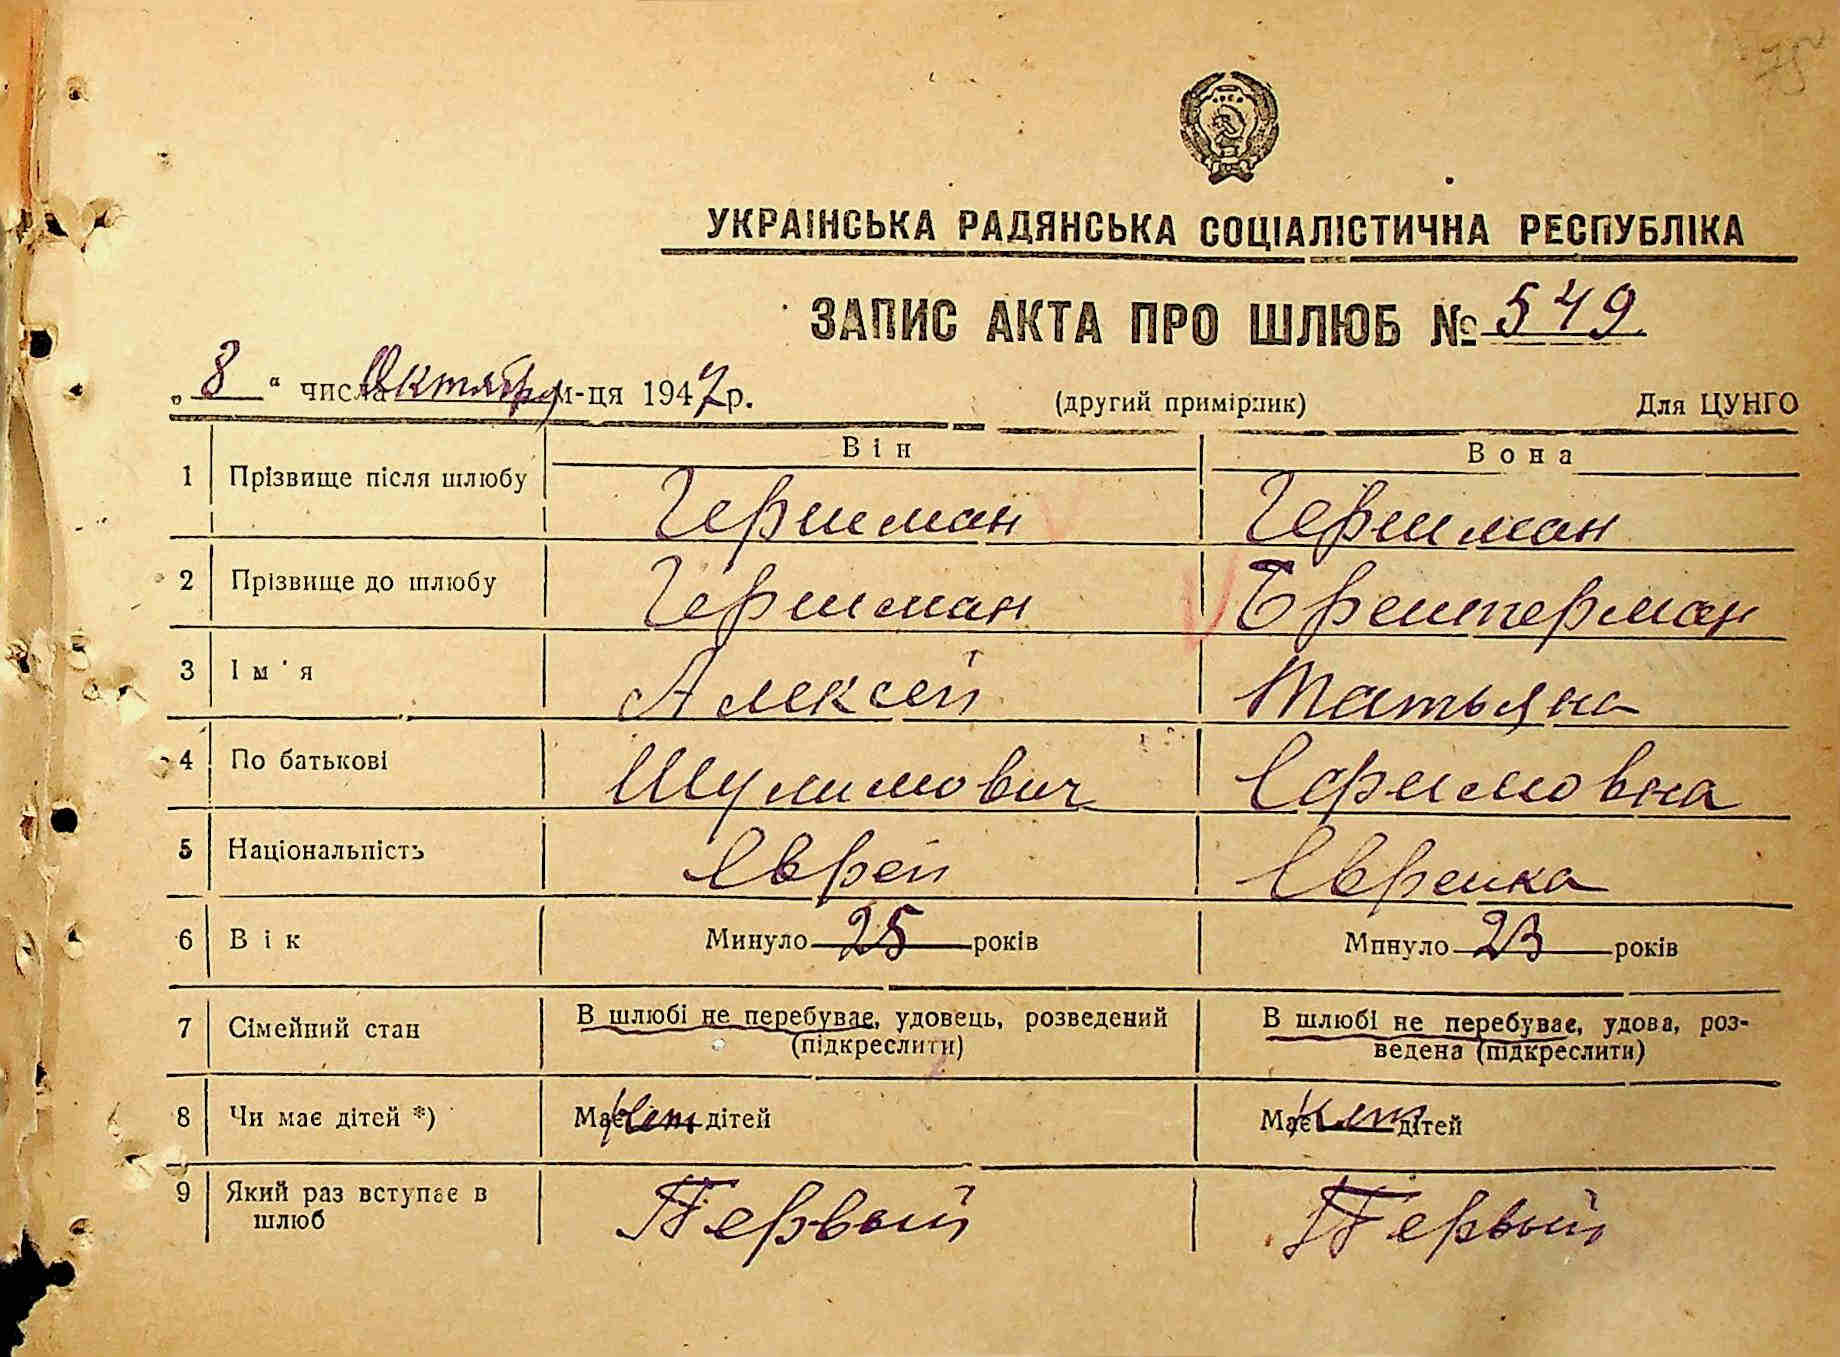 УКРАЇНСЬКА РАДЯНСЬКА СОЦІАЛІСТИЧНА РЕСПУБЛІКА
ЗАПИС АКТА ПРО ШЛЮБ № 549
„8“ числа Октября м-ця 1947 р. (другий примірник) Для ЦУНГО
Він Вона
1 Прізвище після шлюбу Гершман Гершман
2 Прізвище до шлюбу Гершман Брейтерман
3 Ім'я Алексей Татьяна
4 По батькові Шулимович Ефимовна
5 Національність Еврей Еврейка
6 Вік Минуло 25 років Минуло 23 років
7 Сімейний стан В шлюбі не перебуває, удовець, розведений В шлюбі не перебуває, удова, роз-
(підкреслити) ведена (підкреслити)
8 Чи має дітей *) Має нет дітей Має нет дітей
9 Який раз вступає в Первый Первый
шлюб